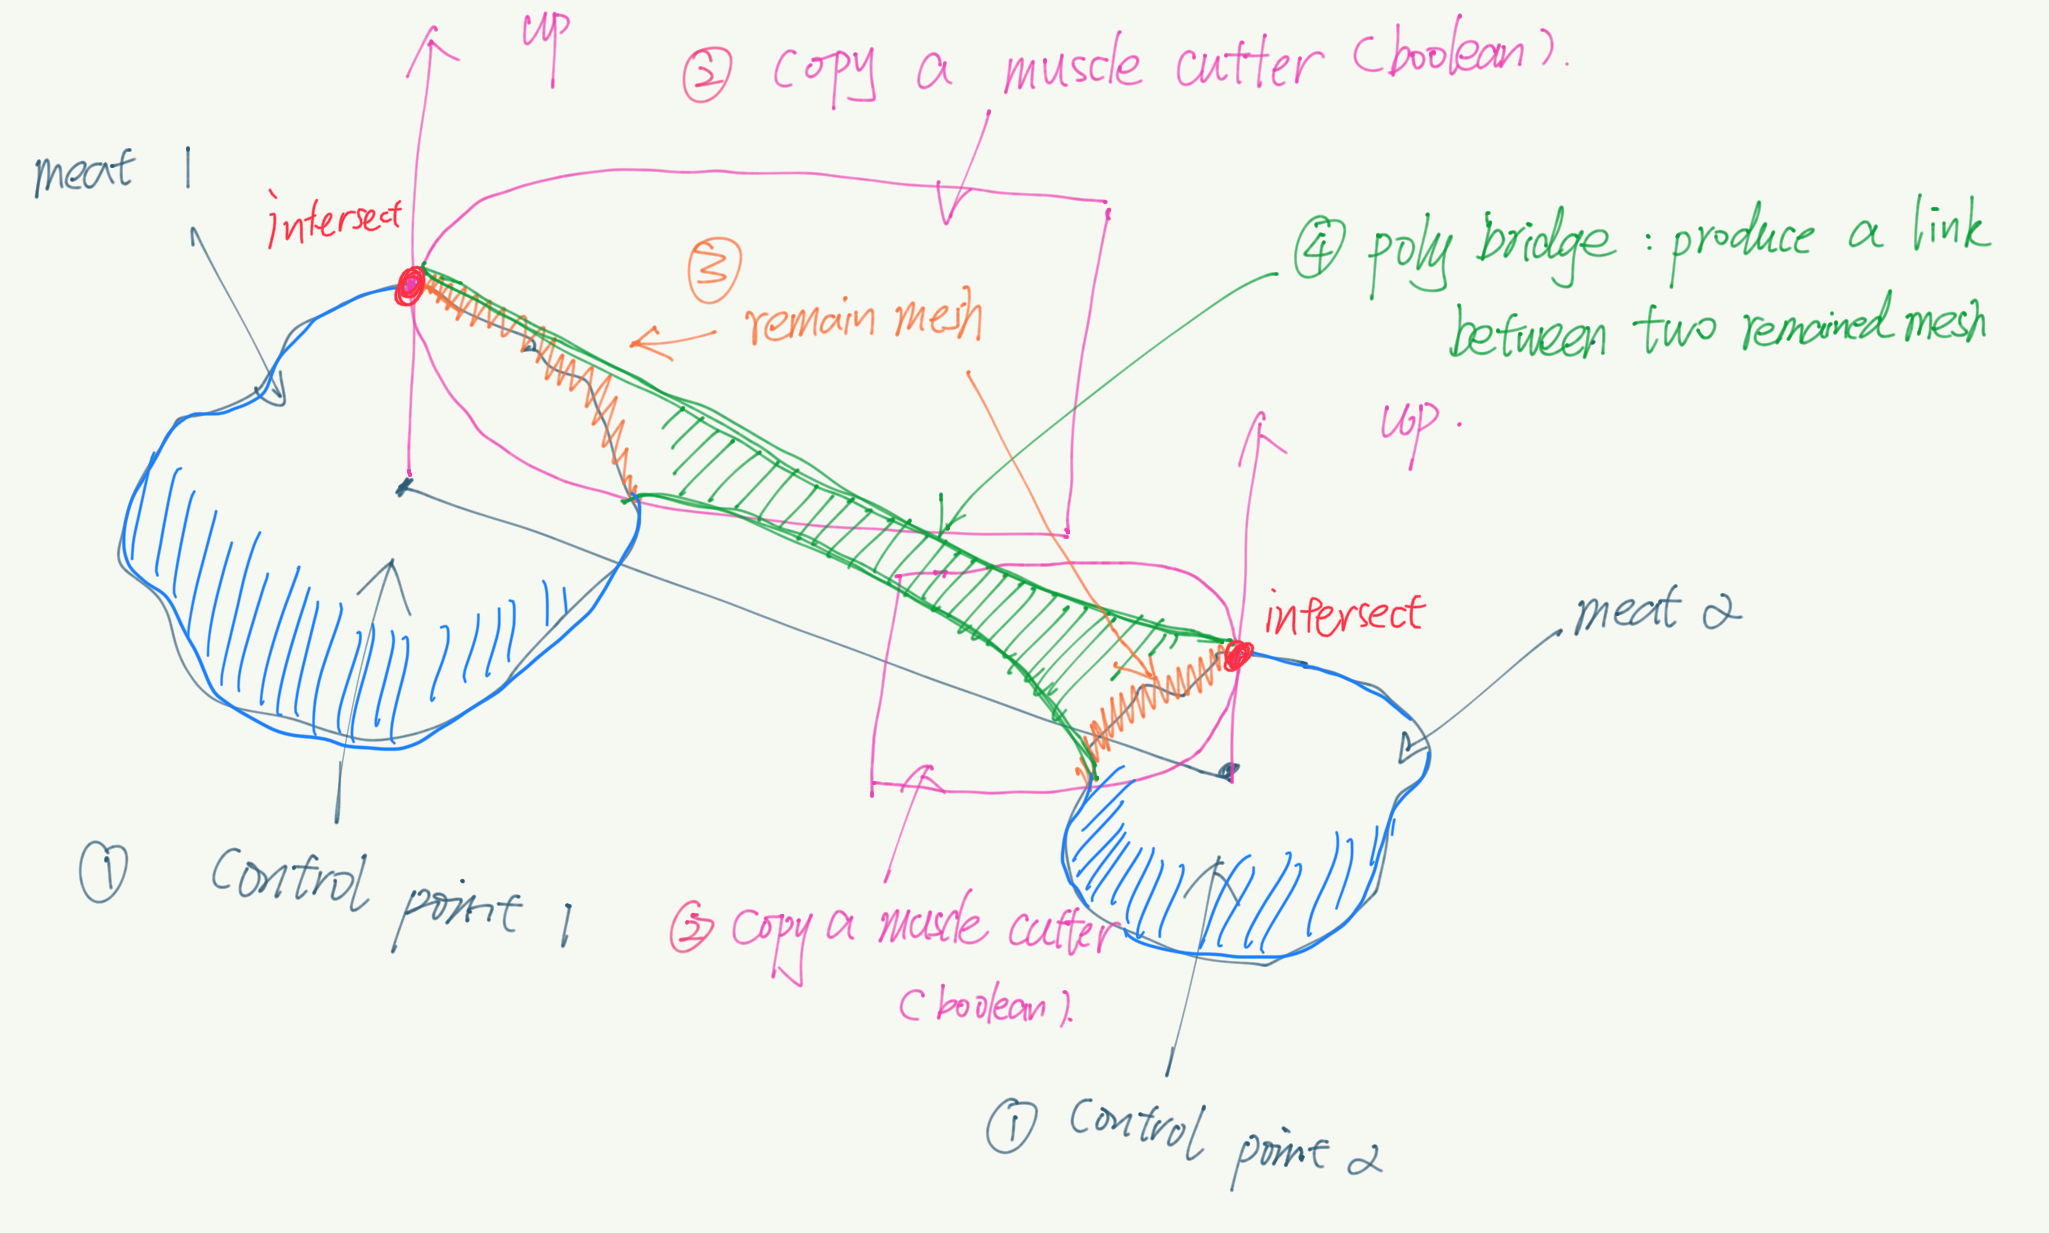 up
② copy a muscle cutter (boolean).
meat 1
intersect
③
remain mesh
④ poly bridge : produce a link
between two remained mesh
up.
intersect
meat 2
① Control point 1
② Copy a muscle cutter
(boolean).
① Control point 2